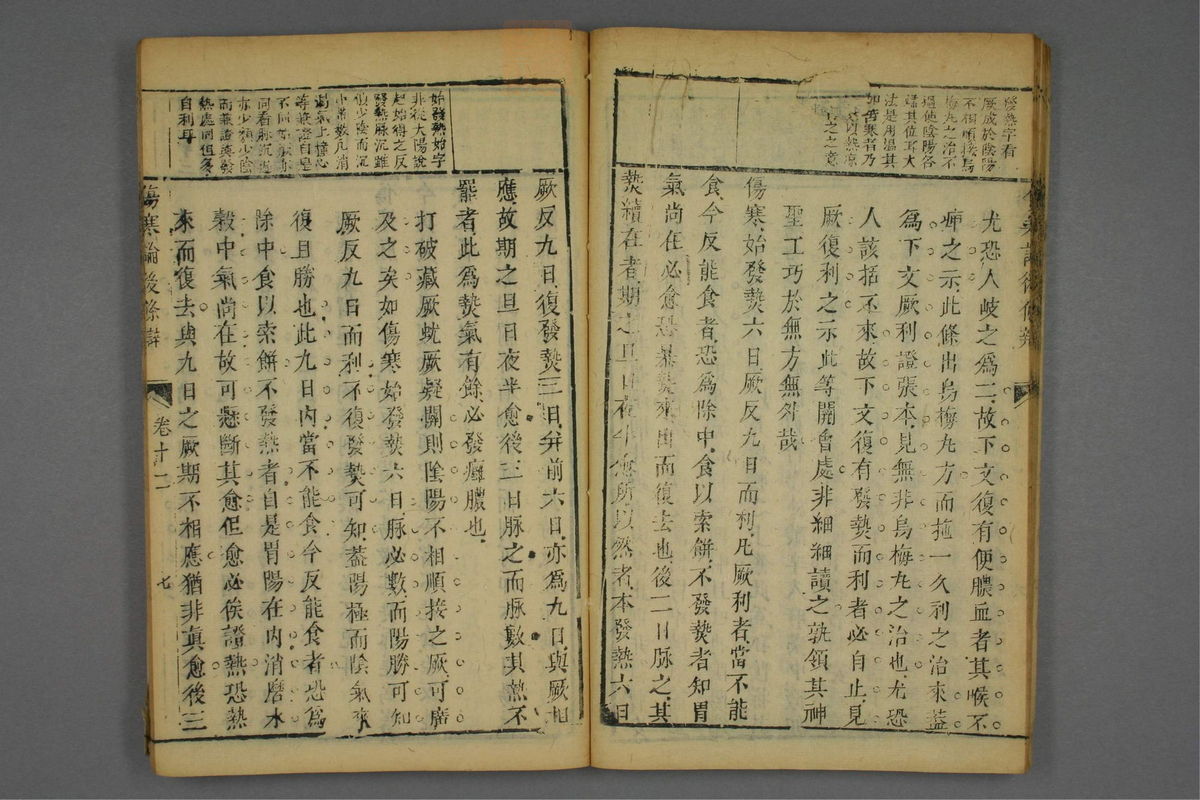 發熱字看
厥成於陰陽
不相順接烏
梅丸之治不
過使陰陽各
歸其位耳大
法是用溫其
加苦寒者乃
尤恐人岐之為二故下文復有便膿血者其喉不
痺之示此條出烏梅丸方而拖一久利之治來葢
為下文厥利證張本見無非烏梅丸之治也尤恐
人該括不來故下文復有發熱而利者必自止見
厥復利之示此等開會處非細細讀之孰領其神
聖工巧於無方無外哉
傷寒始發熱六日厥反九日而利凡厥利者當不能
食今反能食者恐為除中食以索餅不發熱者知胃
氣尚在必愈恐暴熱來出而復去也後三日脉之其
熱續在者期之旦日夜半愈所以然者本發熱六日
始發熱始字
非從太陽說
起始得之反
發熱脉沉雖
似少陰而沉
中常數凡消
渴氣上撞心
等兼證自是
不同如厥亦
同看脉沉遲
亦少類少陰
而兼證與發
熱處同但多
自利耳
厥反九日復發熱三日并前六日亦為九日與厥相
應故期之旦日夜半愈後三日脉之而脉數其熱不
罷者此為熱氣有餘必發癰膿也
打破藏厥蚘厥疑關則陰陽不相順接之厥可廣
及之矣如傷寒始發熱六日脉必數而陽勝可知
厥反九日而利不復發熱可知葢陽極而陰氣來
復且勝也此九日內當不能食今反能食者恐為
除中食以索餅不發熱者自是胃陽在內消磨水
榖中氣尚在故可懸斷其愈但愈必俟證熱恐熱
來而復去與九日之厥期不相應猶非真愈後三
傷寒論後條辯
卷十一
七